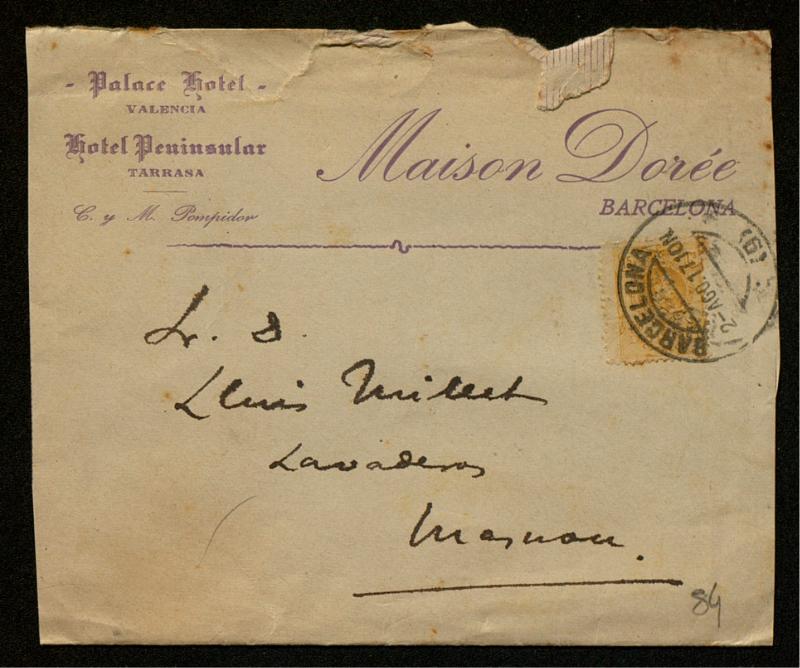 - Palace Hotel -
VALENCIA
Hotel Peninsular
TARRASA
C. y M. Pompidor
Maison Dorée
BARCELONA
BARCELONA
2-AGO.17.10N
(6)
Sr. D.
Lluis Millet
Lavaderos
Masnou.
84